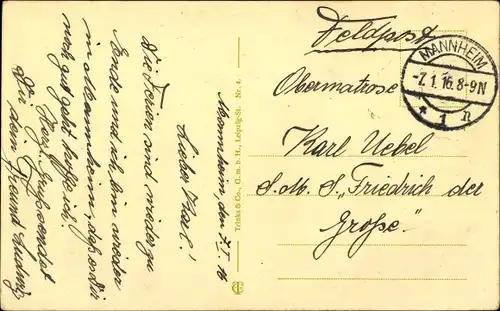 Mannheim, den 7.I.16
Lieber Karl!
Die Ferien sind wieder zu
Ende und ich bin wieder
in Mannheim, daß es dir
noch gut geht hoffe ich.
Herzl. Gruß sendet
Dir dein Freund Ludwig
Trinks & Co., G. m. b. H., Leipzig-St. Nr. 4.
Feldpost
MANNHEIM
-7.1.16.8-9N
* 1 n
Obermatrose
Karl Uebel
S. M. S. „Friedrich der
Große."